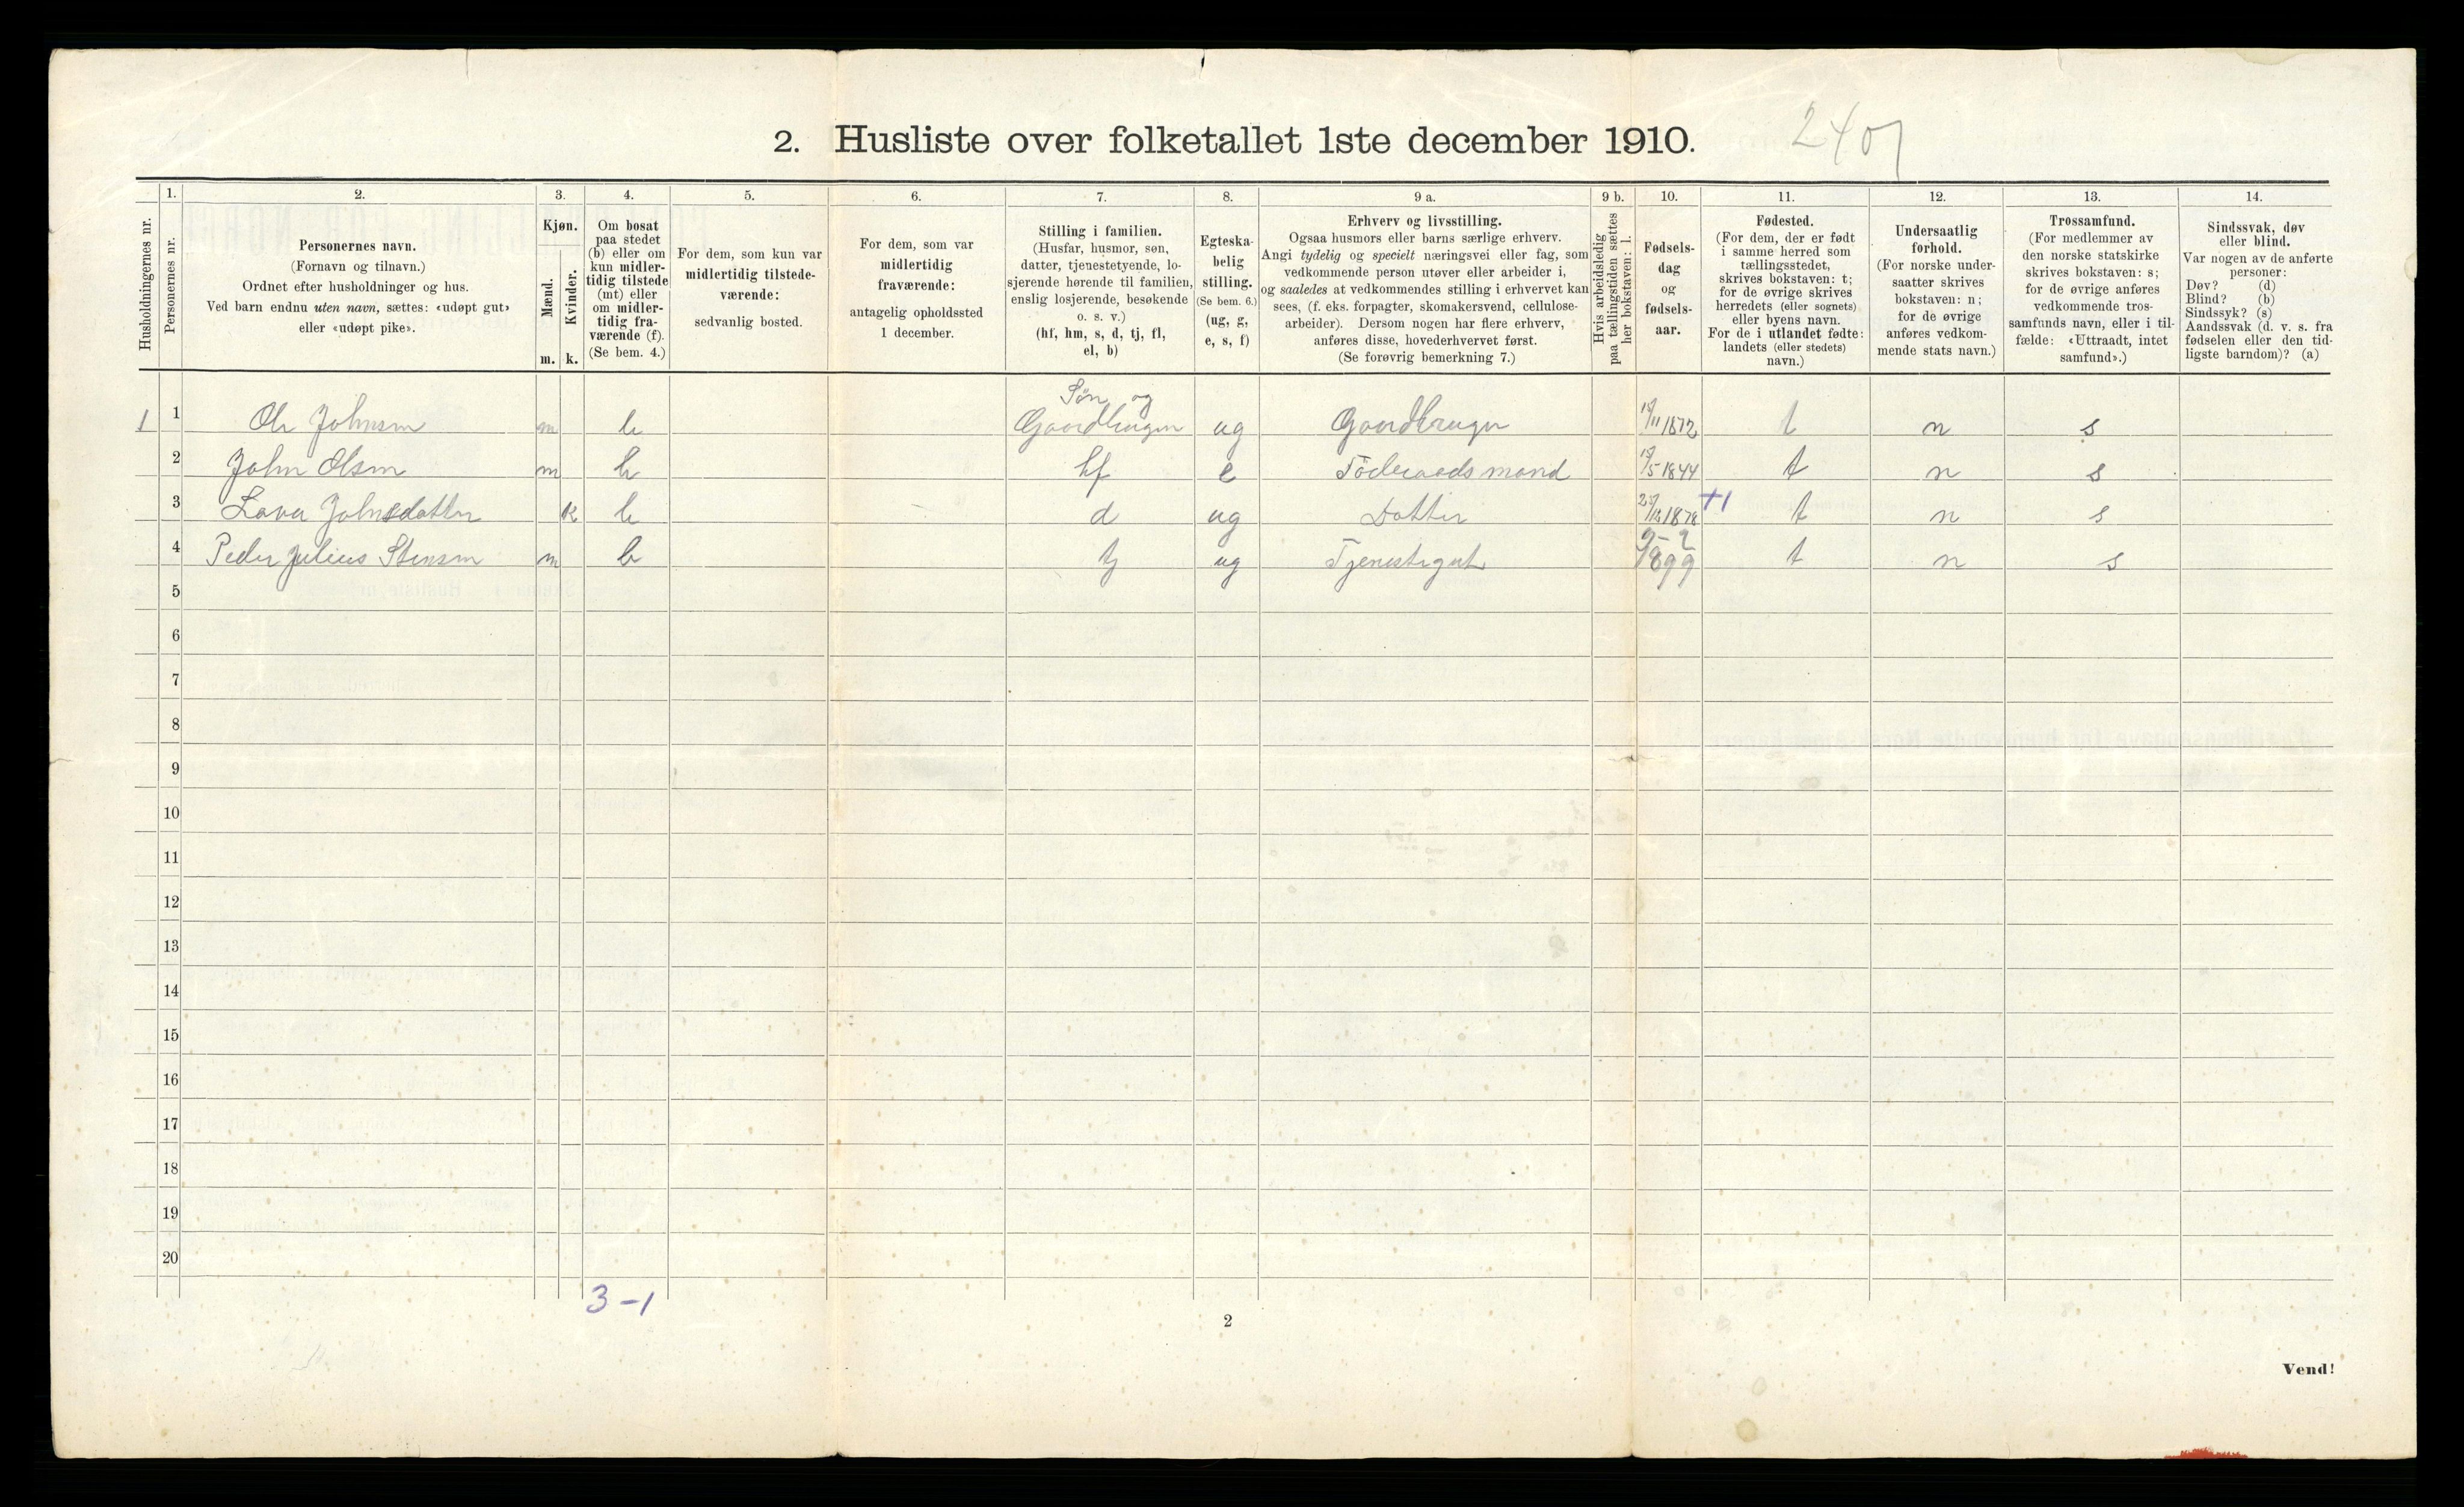 2407
2. Husliste over folketallet 1ste december 1910.
Husholdningernes nr.
1.
Personernes nr.
2.
Personernes navn.
(Fornavn og tilnavn.)
Ordnet efter husholdninger og hus.
Ved barn endnu uten navn, sættes: «udøpt gut»
eller «udøpt pike».
3.
Kjøn.
Mænd.
m.
Kvinder.
k.
4.
Om bosat
paa stedet
(b) eller om
kun midler-
tidig tilstede
(mt) eller
om midler-
tidig fra-
værende (f).
(Se bem. 4.)
5.
For dem, som kun var
midlertidig tilstede-
værende:
sedvanlig bosted.
6.
For dem, som var
midlertidig
fraværende:
antagelig opholdssted
1 december.
7.
Stilling i familien.
(Husfar, husmor, søn,
datter, tjenestetyende, lo-
sjerende hørende til familien,
enslig losjerende, besøkende
o. s. v.)
(hf, hm, s, d, tj, fl,
el, b)
8.
Egteska-
belig
stilling.
(Se bem. 6.)
(ug, g,
e, s, f)
9 a.
Erhverv og livsstilling.
Ogsaa husmors eller barns særlige erhverv.
Angi tydelig og specielt næringsvei eller fag, som
vedkommende person utøver eller arbeider i,
og saaledes at vedkommendes stilling i erhvervet kan
sees, (f. eks. forpagter, skomakersvend, cellulose-
arbeider). Dersom nogen har flere erhverv,
anføres disse, hovederhvervet først.
(Se forøvrig bemerkning 7.)
9 b.
Hvis arbeidsledig
paa tællingstiden sættes
her bokstaven: l.
10.
Fødsels-
dag
og
fødsels-
aar.
11.
Fødested.
(For dem, der er født
i samme herred som
tællingsstedet,
skrives bokstaven: t;
for de øvrige skrives
herredets (eller sognets)
eller byens navn.
For de i utlandet fødte:
landets (eller stedets)
navn.)
12.
Undersaatlig
forhold.
(For norske under-
saatter skrives
bokstaven: n;
for de øvrige
anføres vedkom-
mende stats navn.)
13.
Trossamfund.
(For medlemmer av
den norske statskirke
skrives bokstaven: s;
for de øvrige anføres
vedkommende tros-
samfunds navn, eller i til-
fælde: «Uttraadt, intet
samfund».)
14.
Sindssvak, døv
eller blind.
Var nogen av de anførte
personer:
Døv? (d)
Blind? (b)
Sindssyk? (s)
Aandssvak (d. v. s. fra
fødselen eller den tid-
ligste barndom)? (a)
Søn og
1 1 Ole Johnsen m b Gaardbruger ug Gaardbruger 19/11 1872 t n s
2 John Olsen m b hf e Föderaadsmand 19/5 1844 t n s
3 Lava Johnsdatter k b d ug Dotter 27/12 1878 +1 t n s
4 Peder Julius Stensen m b tj ug Tjenestegut 9-2 1899 t n s
5
6
7
8
9
10
11
12
13
14
15
16
17
18
19
20
3-1
2
Vend!